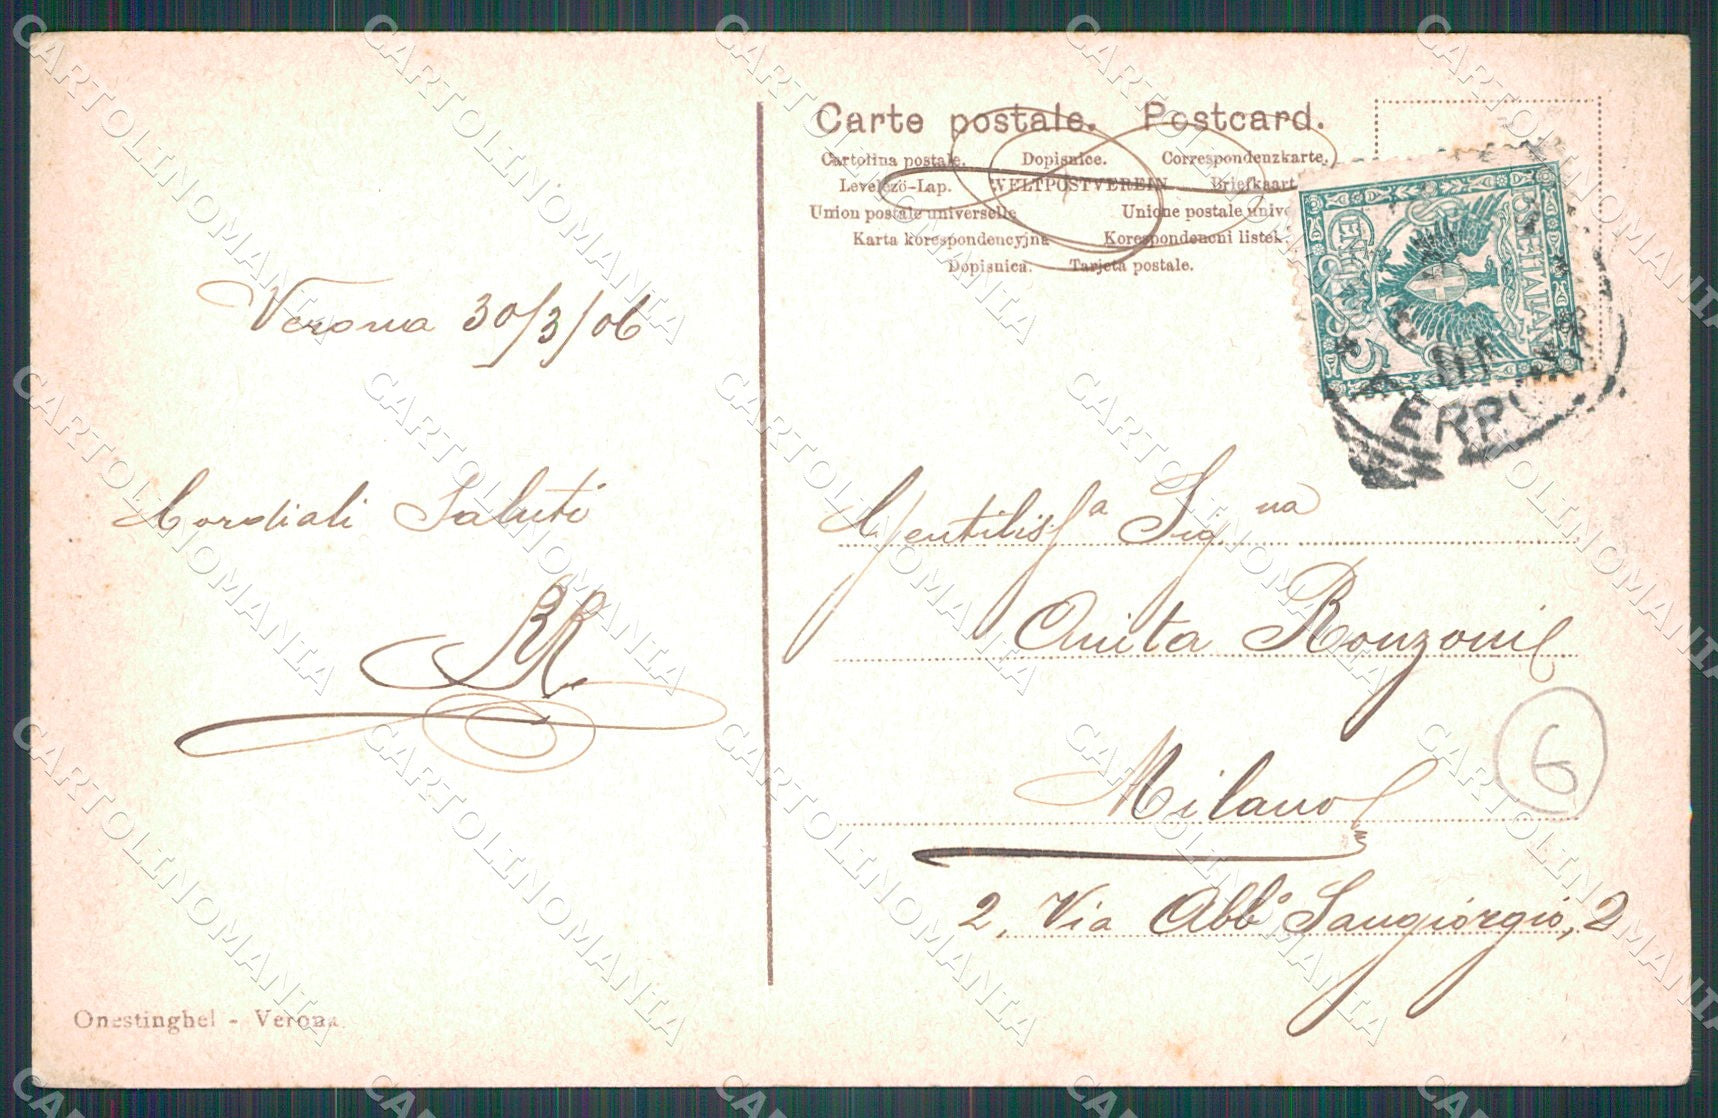 Carte postale. Postcard.
Cartolina postale. Dopisnice. Correspondenzkarte.
Levelező-Lap. WELTPOSTVEREIN Briefkaart
Union postale universelle Unione postale unive
Karta korespondencyjna Korespondencni listek.
Dopisnica. Tarjeta postale.
POSTE ITALIANE
CENTESIMI 5
ERRO
Verona 30/3/06
Cordiali Saluti
RR
Gentiliss.a Sig.na
Anita Ronzoni
Milano
2, Via Abb.o Sangiorgio, 2
6
Onestinghel - Verona
CARTOLINOMANIA